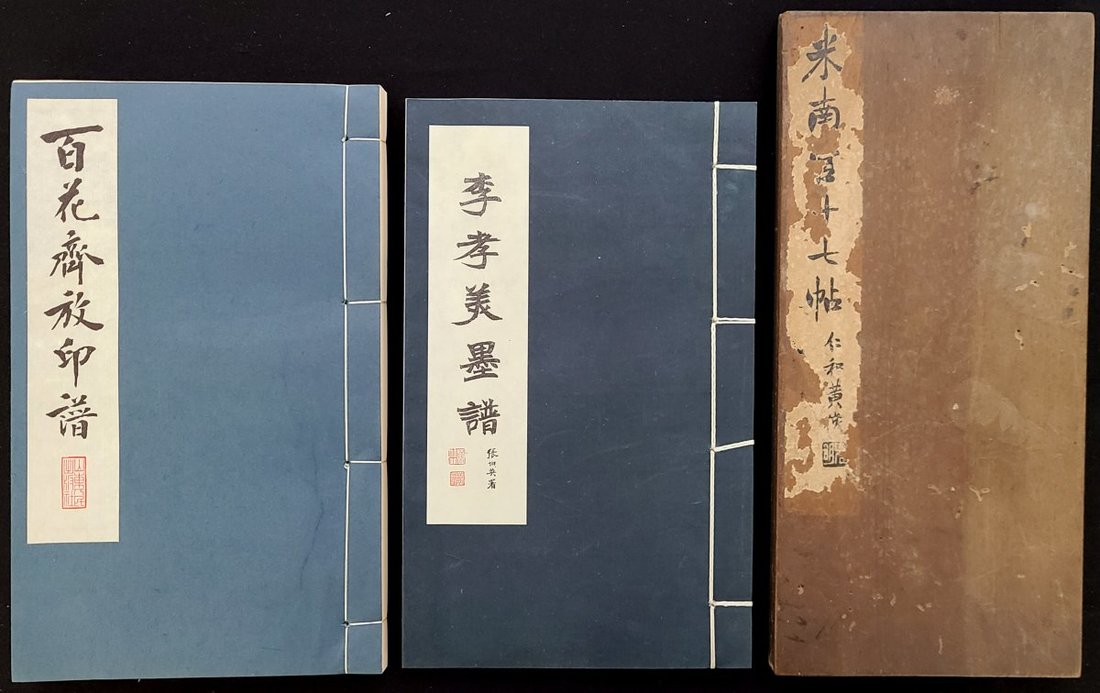 百花齊放印譜
李孝美墨譜
張伯英署
米南宮十七帖
仁和黃